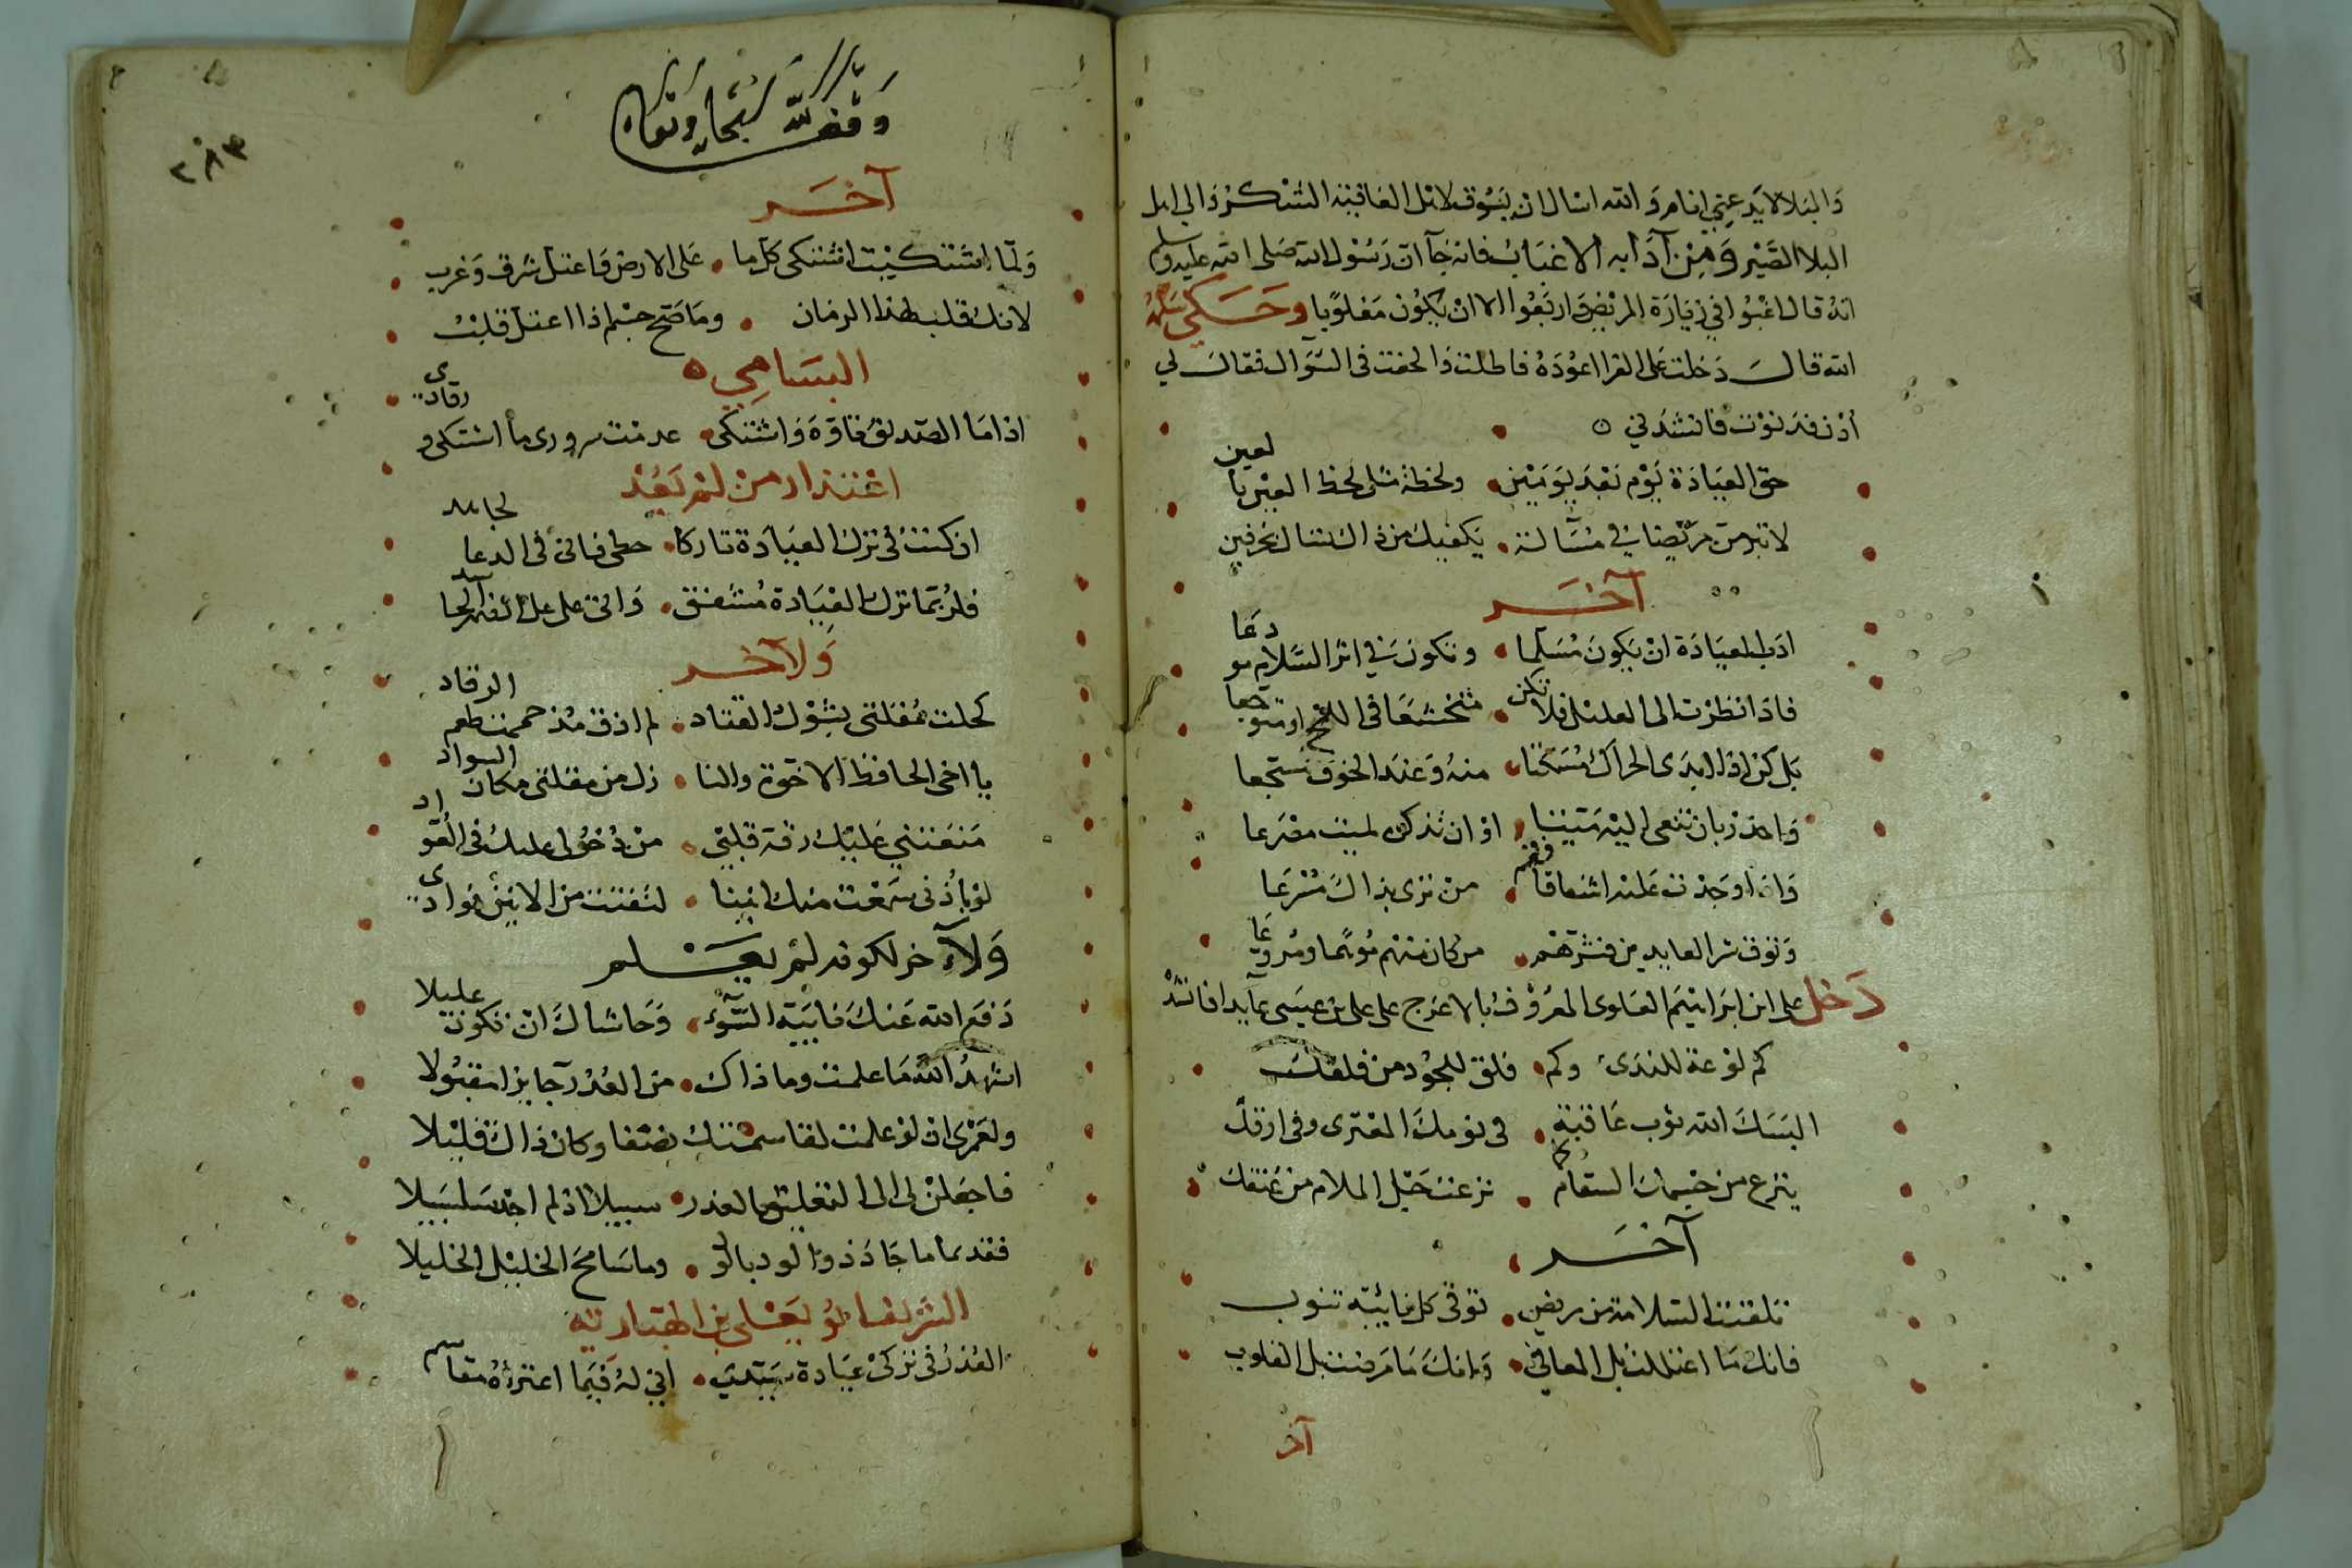 والبلا لا يدعني انام والله اسال ان يسوق لاهل العافية الشكر والى اهل
البلا الصبر ومن آدابه الاغباب فانه جآ ان رسول الله صلى الله عليه وسلم
انه قال اغبوا في زيارة المريض واربعوا الا ان يكون مغلوبا وحكى
انه قال دخلت على الفرا اعوده فاطلت والحفت فى السوال فقال لي
أدن فدنوت فانشدني
حق العيادة يوم بعد يومين ولحظة مثل لحظ العين بالعين
لا تبرمن مريضا في مسآلة يكفيك من ذاك تسال بحرفين
آخر
ادب العيادة ان يكون مسلما وتكون في اثر السلام مودعا
فاذا نظرت الى العليل فلا تكن متخشعا فى اللمح او متوجعا
بل كن اذا ابدى الحراك مسكنا منه وعند الخوف مشجعا
واحذر بان تنعى اليه ميتنا او ان تذكره لميت مصرعا
واذا وجدت عليه اشفاقا فقم من نرى بذاك مسرعا
وتوق شر العايدين فشرهم من كان منهم موهما ومروعا
دخل على ابن ابراهيم العلوى المعروف بالاعرج على على بن عيسى عآيدا فانشد
كم لوعة للندى وكم قلق للجود من قلقك
البسك الله ثوب عافية فى نومك المعترى وفى ارقك
ينزع من جسمك السقام كما نزعت حبل الملام من عنقك
آخر
تلقتك السلامة من مريض توقى كل نايبة تنوب
فانك ما اعتللت بل المعالي وانك ما مرضت بل القلوب
آخر
وقف لله سبحانه وتعالى
٢٨٣
آخر
ولما اشتكيت اشتكى كل ما على الارض واعتل شرق وغرب
لانك قلب لهذا الزمان وما صح جسم اذا اعتل قلب
البسامي
اذا ما الصديق تاوه واشتكى عدمت سرورى ما اشتكى ورقادي
اعتذار من لم يعد
ان كنت فى ترك العيادة تاركا حظى فانى فى الدعا لجاهد
فلربما ترك العيادة مشفق واتى على غل الضمير الحاسد
ولآخر
كحلت مقلتى بشوك القتاد لم اذق مذ حممت طعم الرقاد
يا اخى الحافظ الاخوة والنا زل من مقلتى مكان السواد
منعتني عليك رقة قلبي من دخولى عليك فى العواد
لو باذنى سمعت منك انينا لتفتت من الانين فوادي
ولآخر لكونه لم يعلم
دفع الله عنك نايبة السوء وحاشاك ان تكون عليلا
اشهد الله ما علمت وما ذاك من العذر جايزا مقبولا
ولعمرى ان لو علمت لقاسمتك نصفا وكان ذاك قليلا
فاجعلن لى الى التعلق بالعذر سبيلا اذ لم اجد سبيلا
فقديما ما جاد ذو الود بالود وما سامح الخليل الخليلا
الشريف ابو يعلى بن الهبارية
العذر فى تركى عيادة سيدي اني له فيما اعتراه مقاسم